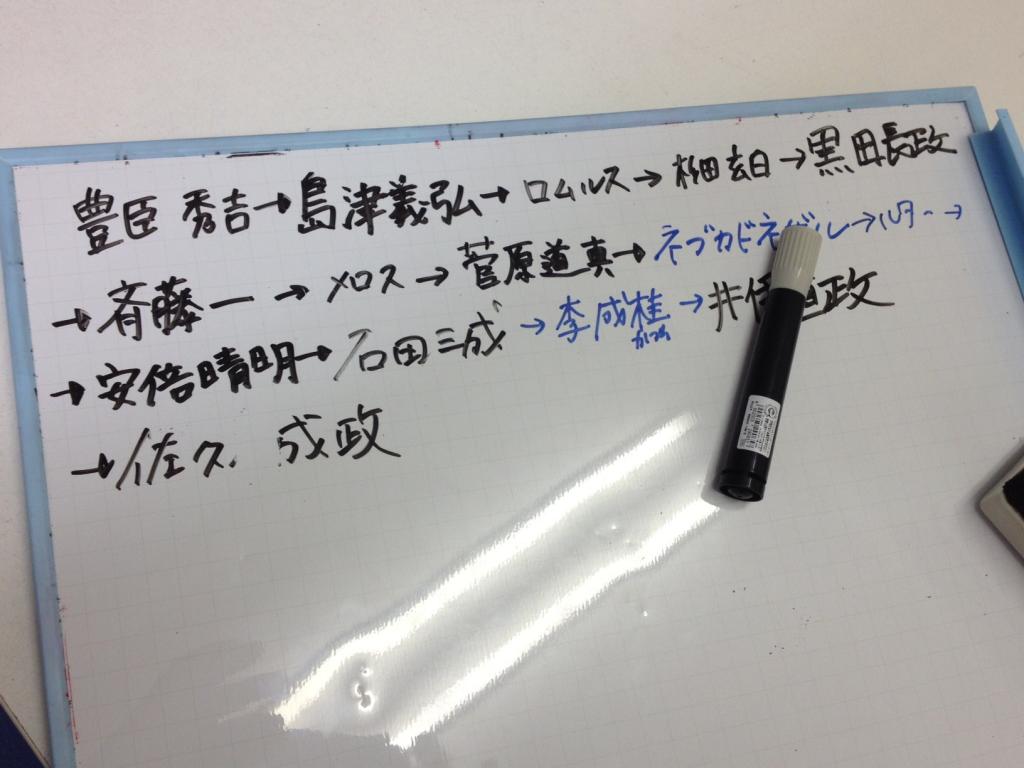 豊臣 秀吉→島津義弘→ロムルス→杉田玄白→黒田長政
→斉藤一→メロス→菅原道真→ネブカドネザル→ルター→
→安倍晴明→石田三成→李成桂→井伊直政
かつら
→佐久 成政